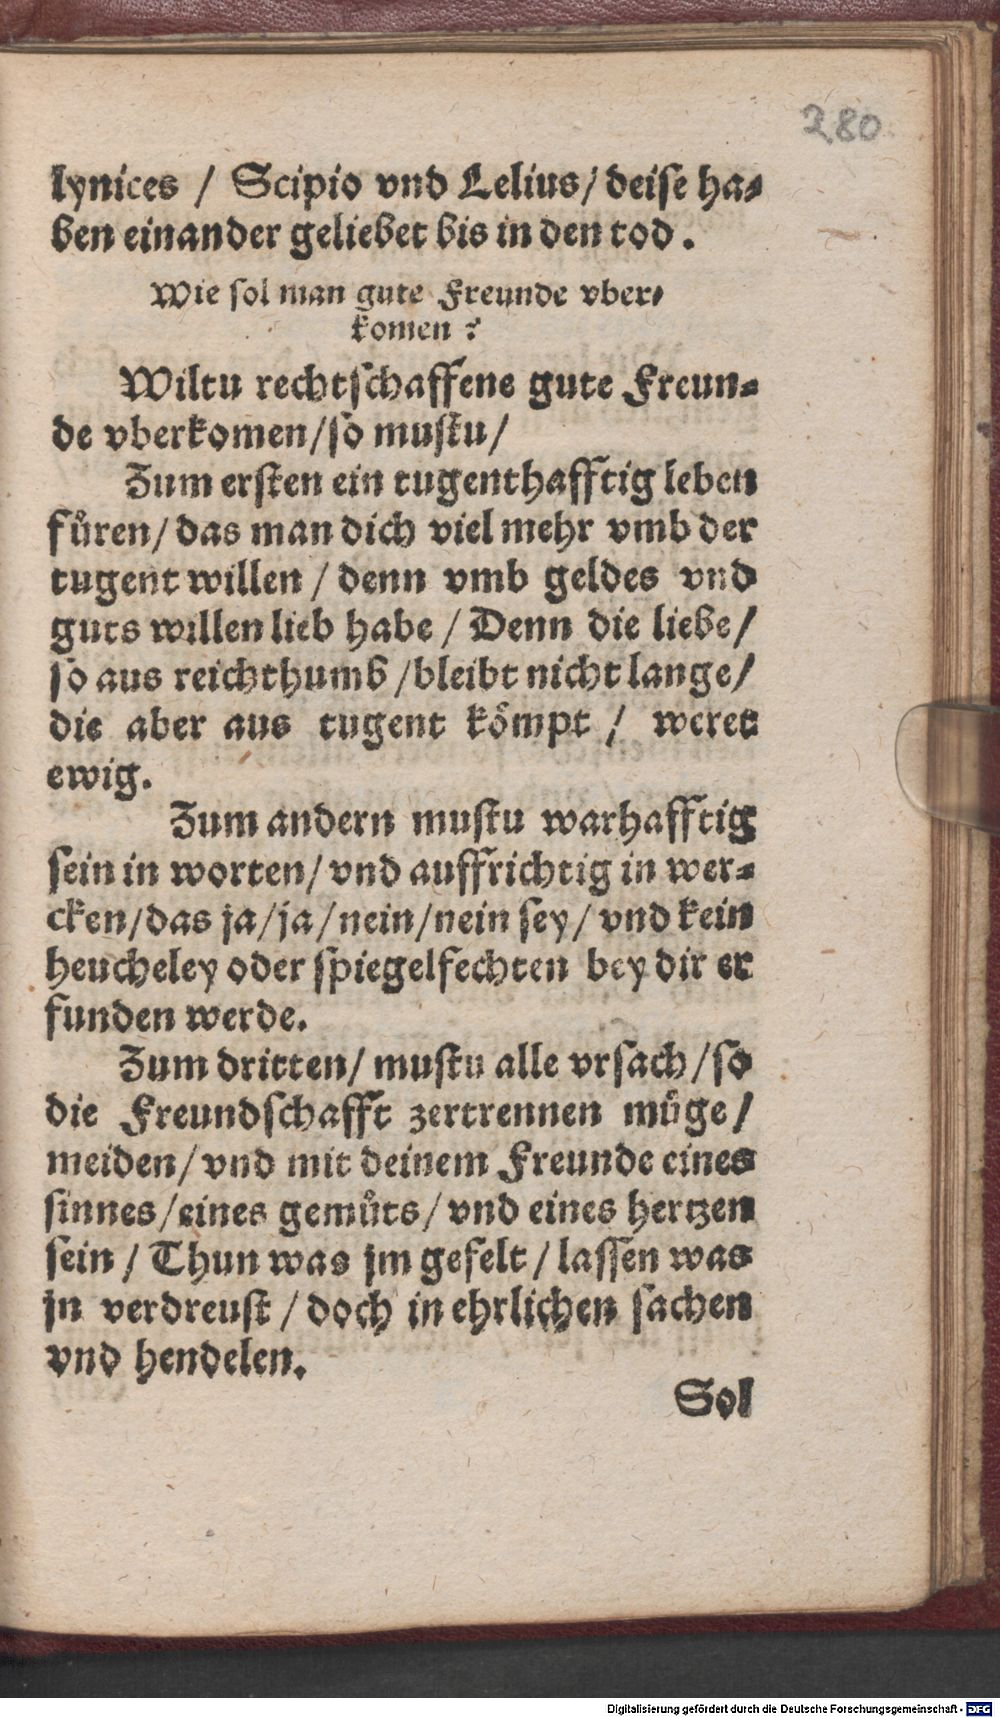 280
lynices / Scipio vnd Lelius / deise ha-
ben einander geliebet bis in den tod .
Wie sol man gute Freunde vber-
komen ?
Wiltu rechtschaffene gute Freun-
de vberkomen / so mustu /
Zum ersten ein tugenthafftig leben
fuͤren / das man dich viel mehr vmb der
tugent willen / denn vmb geldes vnd
guts willen lieb habe / Denn die liebe /
so aus reichthumb / bleibt nicht lange /
die aber aus tugent koͤmpt / weret
ewig.
Zum andern mustu warhafftig
sein in worten / vnd auffrichtig in wer-
cken / das ja / ja / nein / nein sey / vnd kein
heucheley oder spiegelfechten bey dir er
funden werde.
Zum dritten / mustu alle vrsach / so
die Freundschafft zertrennen muͤge /
meiden / vnd mit deinem Freunde eines
sinnes / eines gemuͤts / vnd eines hertzen
sein / Thun was jm gefelt / lassen was
jn verdreust / doch in ehrlichen sachen
vnd hendelen.
Sol
Digitalisierung gefördert durch die Deutsche Forschungsgemeinschaft - DFG